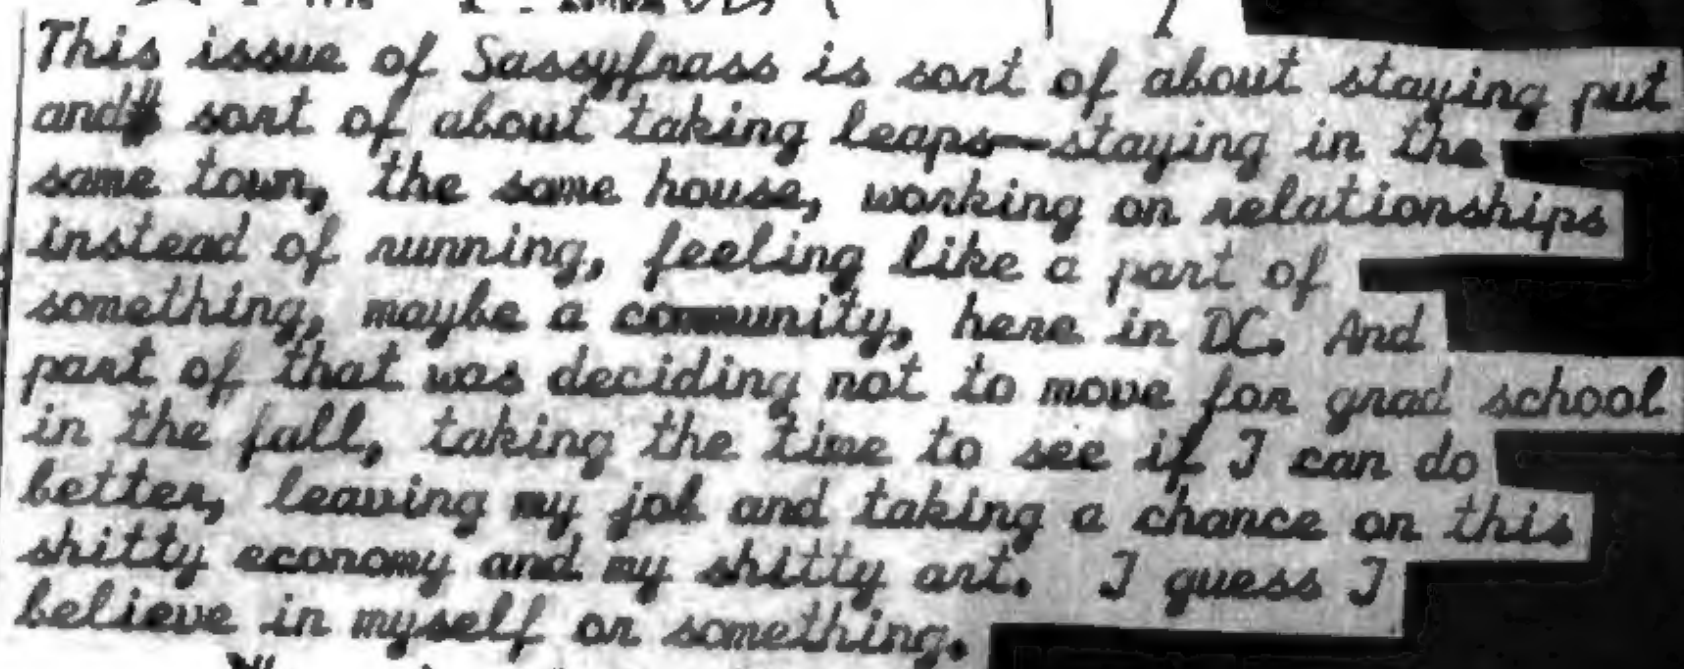 This issue of Sassyfrass is sort of about staying put
and sort of about taking leaps—staying in the
same town, the same house, working on relationships
instead of running, feeling like a part of
something, maybe a community, here in DC. And
part of that was deciding not to move for grad school
in the fall, taking the time to see if I can do
better, leaving my job and taking a chance on this
shitty economy and my shitty art. I guess I
believe in myself or something.